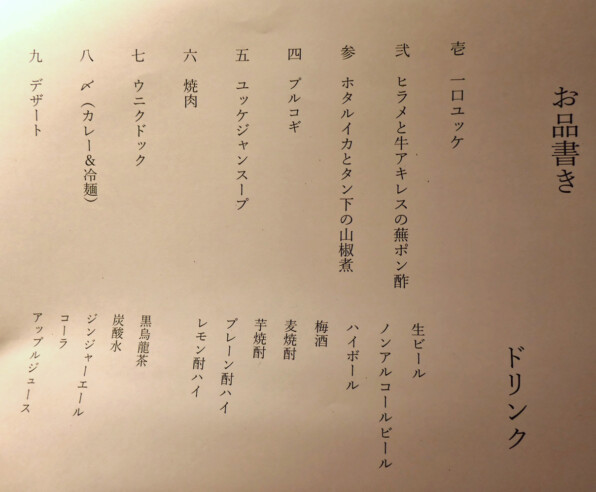 お品書き
壱 一口ユッケ
弐 ヒラメと牛アキレスの蕪ポン酢
参 ホタルイカとタン下の山椒煮
四 プルコギ
五 ユッケジャンスープ
六 焼肉
七 ウニクドック
八 〆（カレー＆冷麺）
九 デザート
ドリンク
生ビール
ノンアルコールビール
ハイボール
梅酒
麦焼酎
芋焼酎
プレーン酎ハイ
レモン酎ハイ
黒烏龍茶
炭酸水
ジンジャーエール
コーラ
アップルジュース